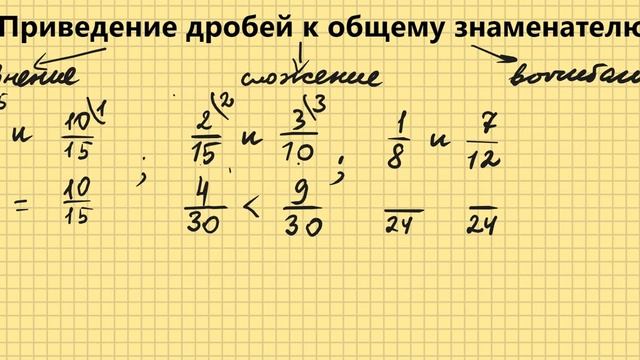 Приведение дробей к общему знаменателю
сложение
и 10/15 \1 ; 2/15 \2 и 3/10 \3 ; 1/8 и 7/12
= 10/15 4/30 < 9/30 /24 /24